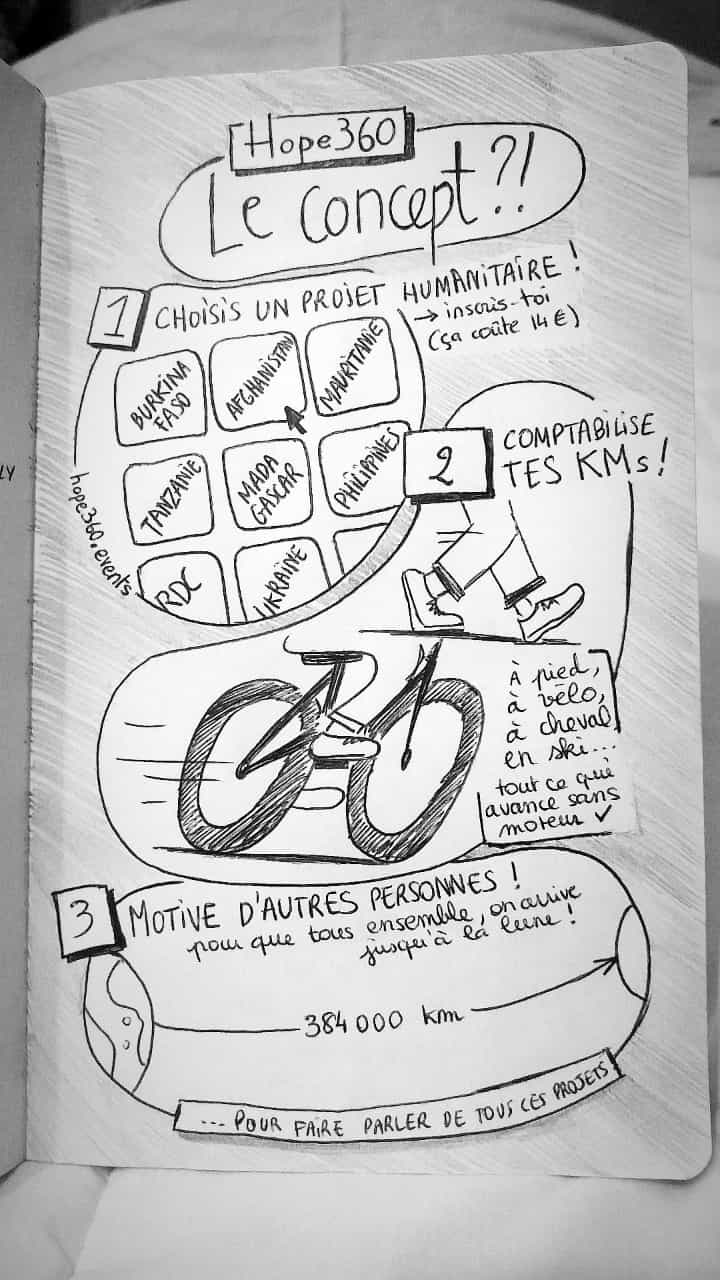 Hope360
Le concept?!
1 CHOISIS UN PROJET HUMANITAIRE !
→ inscris-toi
(ça coûte 14 €)
BURKINA
FASO
AFGHANISTAN
MAURITANIE
TANZANIE
MADA
GASCAR
PHILIPPINES
RDC
UKRAINE
hope360.events
LY
2 COMPTABILISE
TES KMs !
À pied,
à vélo,
à cheval,
en ski...
tout ce qui
avance sans
moteur ✓
3 MOTIVE D'AUTRES PERSONNES !
pour que tous ensemble, on arrive
jusqu'à la lune !
384 000 km
... POUR FAIRE PARLER DE TOUS CES PROJETS